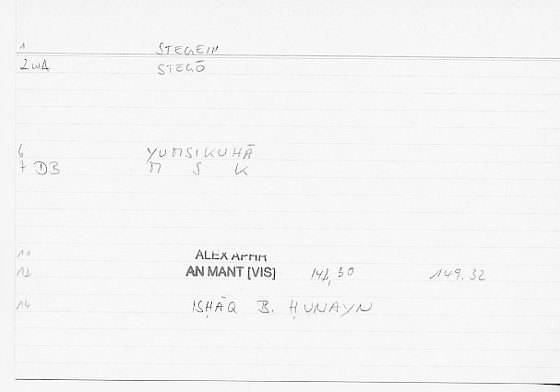 1 STEGEIN
2 WA STEGŌ
6 YUMSIKUHĀ
7 DB M S K
11 ALEX APHR
12 AN MANT [VIS] 142,30 149.32
14 ISḤĀQ B. ḤUNAYN